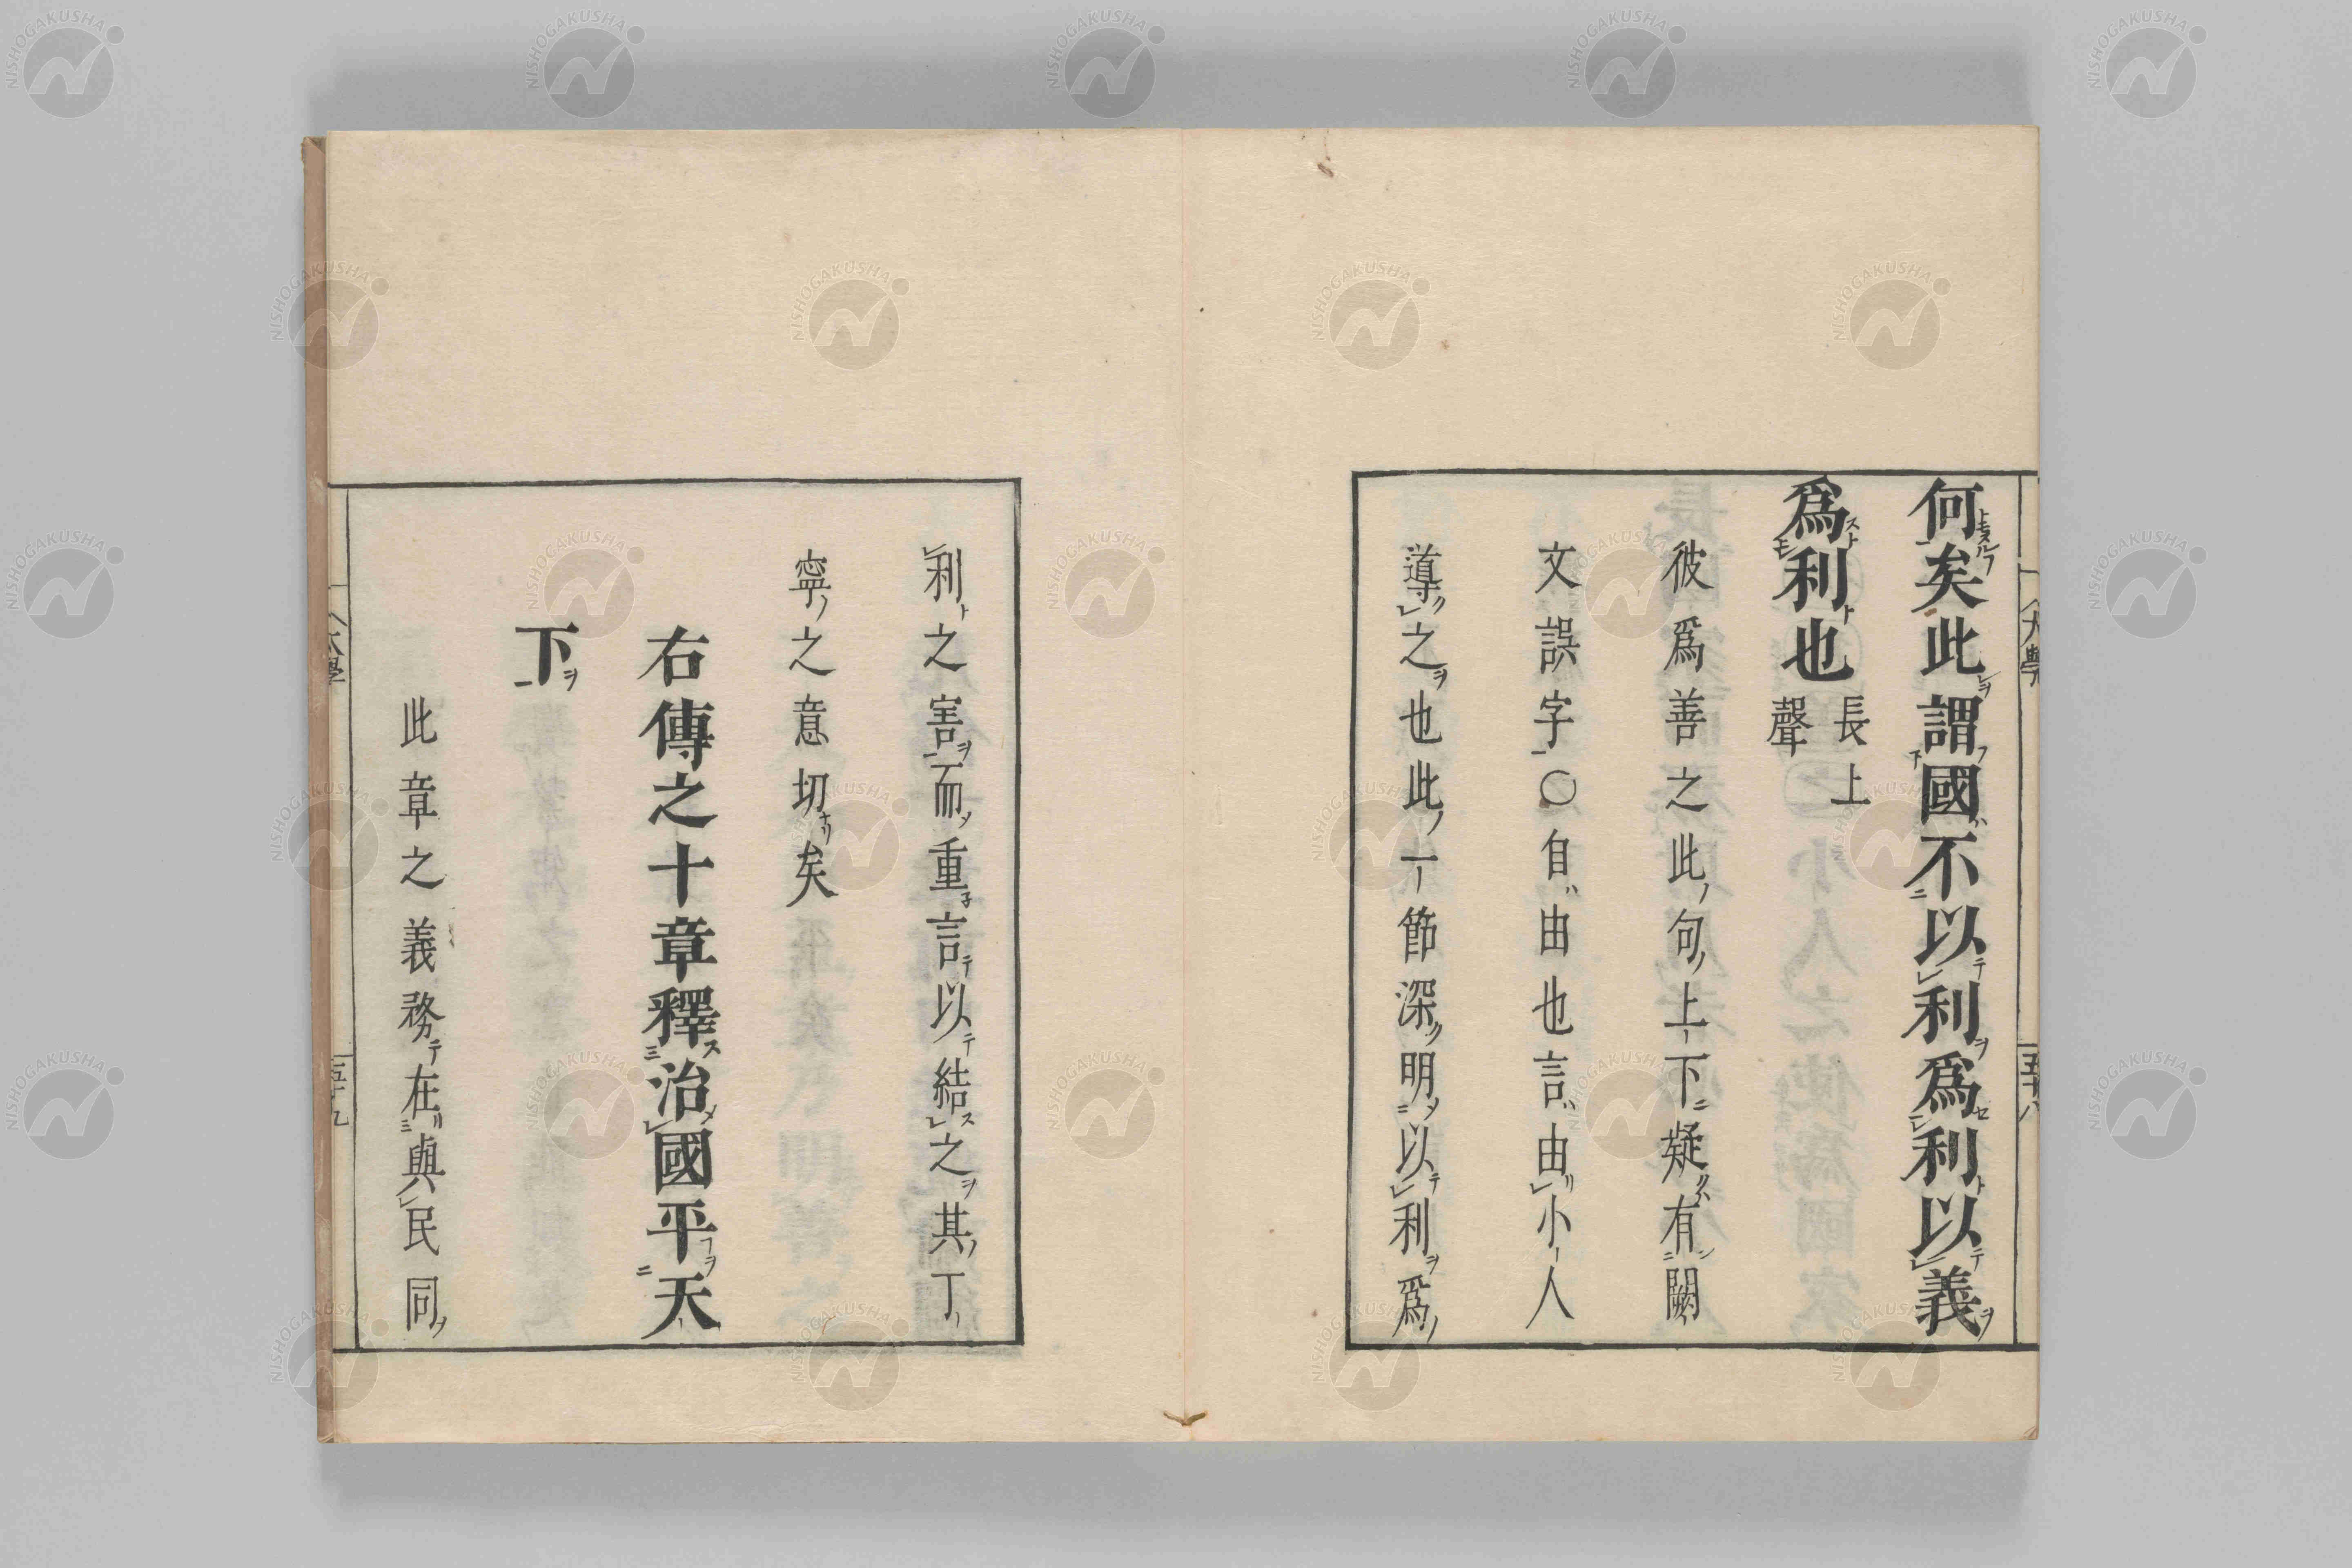 何矣此謂國不以利爲利以義
爲利也 長上聲
彼爲善之此句上下疑有闕
文誤字○自由也言由小人
導之也此一節深明以利爲
利之害而重言以結之其丁
寧之意切矣
右傳之十章釋治國平天
下
此章之義務在與民同
大學
五十八
大學
五十九
NISHOGAKUSHA